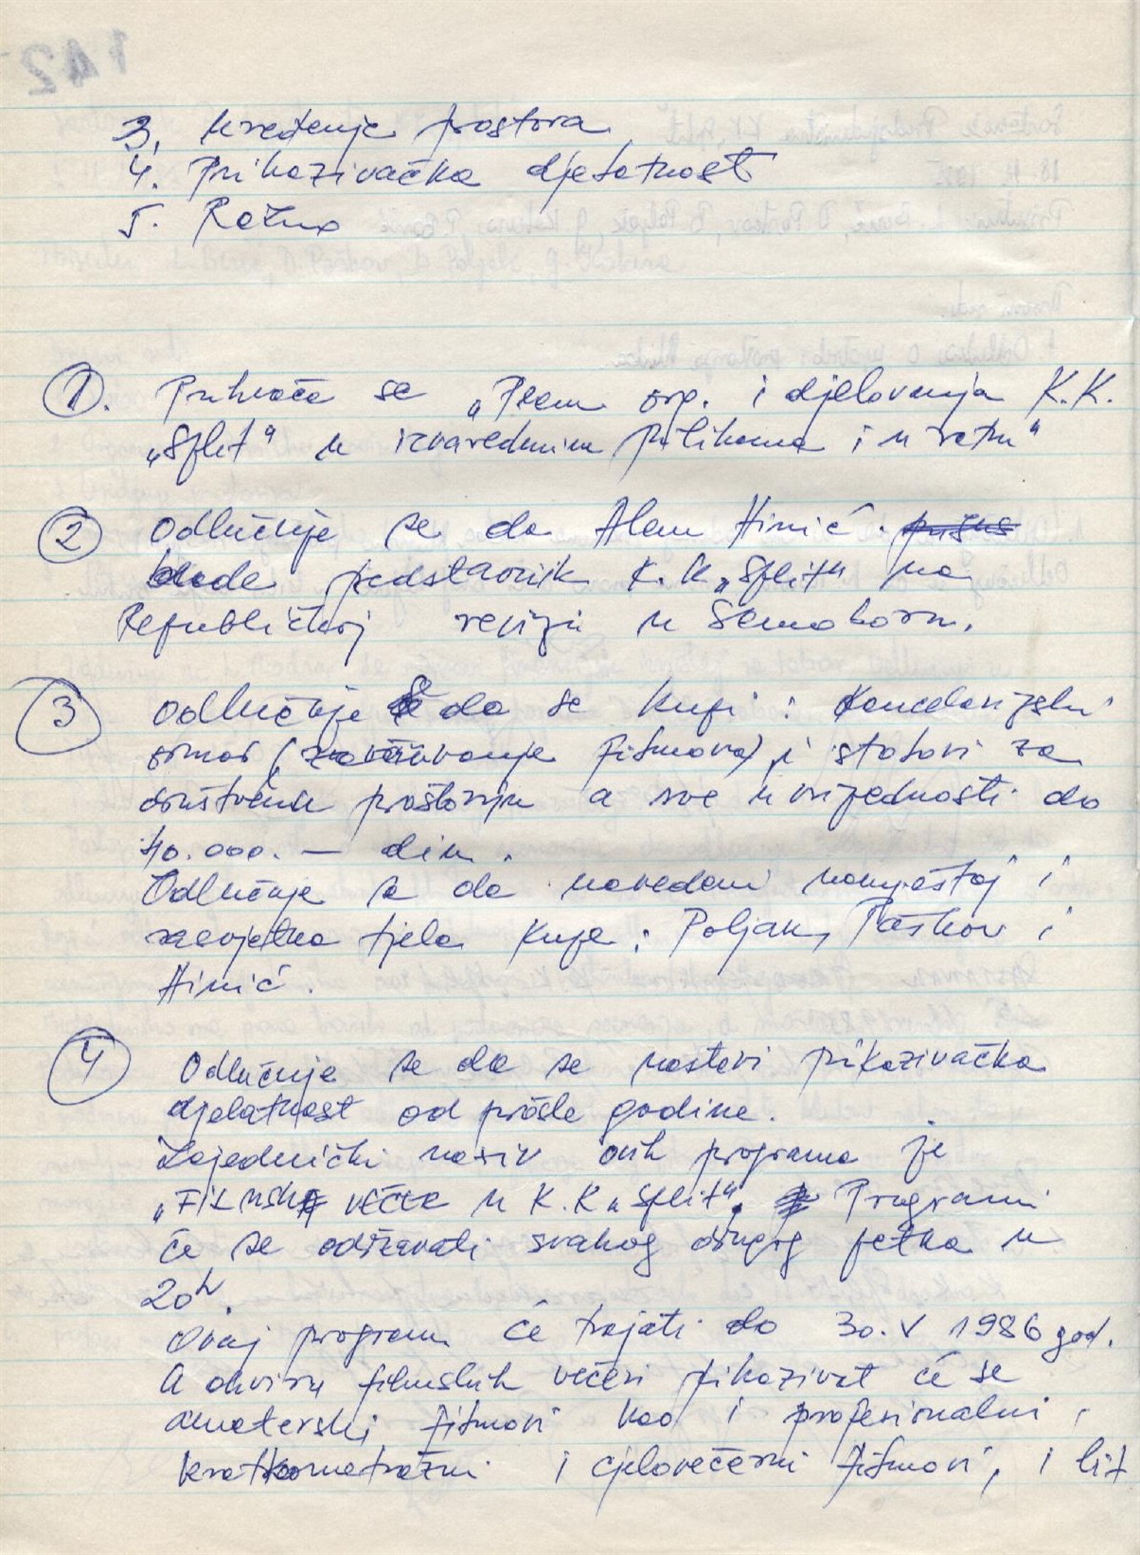 3. Uređenje prostora
4. Prikazivačka djelatnost
5. Razno
1. Prihvaća se „Plan org. i djelovanja K.K.
„Split" u izvanrednim prilikama i u ratu"
2 Odlučuje se da Alem Himić
bude predstavnik K.K „Split" na
Republičkoj reviji u Samoboru.
3 Odlučuje da se kupi: kancelarijski
ormar (za čuvanje filmova) i stolovi za
društvenu prostoriju a sve u vrijednosti do
40.000. — din.
Odlučuje se da navedeni namještaj i
rasvjetna tjela kupe: Poljak, Paškov i
Himić.
4 Odlučuje se da se nastavi prikazivačka
djelatnost od prošle godine.
Zajednički naziv ovih programa je
„FILMSKE VEČERI u K.K „Split". Programi
će se održavati svakog drugog petka u
20h.
Ovaj program će trajati do 30. V 1986 god.
U okviru filmskih večeri prikazivat će se
amaterski filmovi kao i profesionalni,
kratkometražni i cjelovečernji filmovi, i